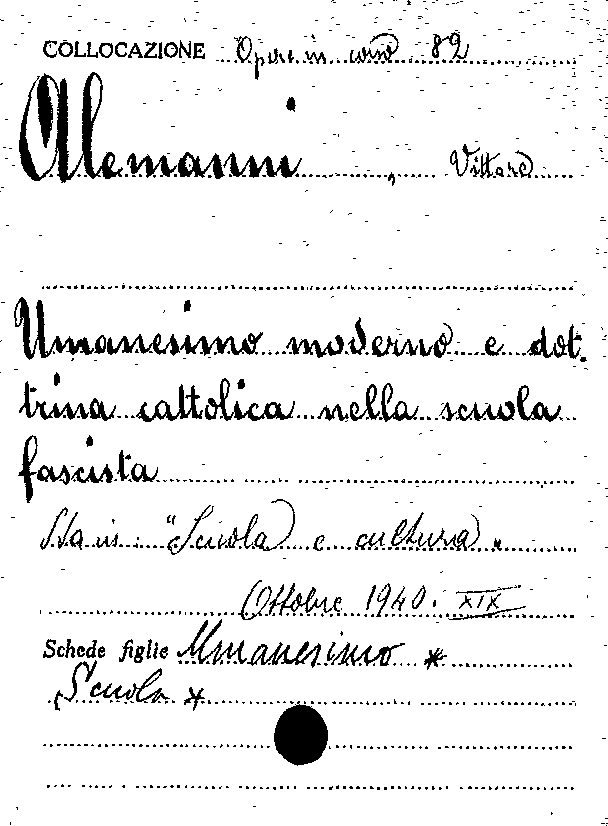 COLLOCAZIONE Opere in corso 82
Alemanni, Vittore
Umanesimo moderno e dot-
trina cattolica nella scuola
fascista
Sta in: "Scuola e cultura"
Ottobre 1940. XIX
Schede figlie Umanesimo *
Scuola *